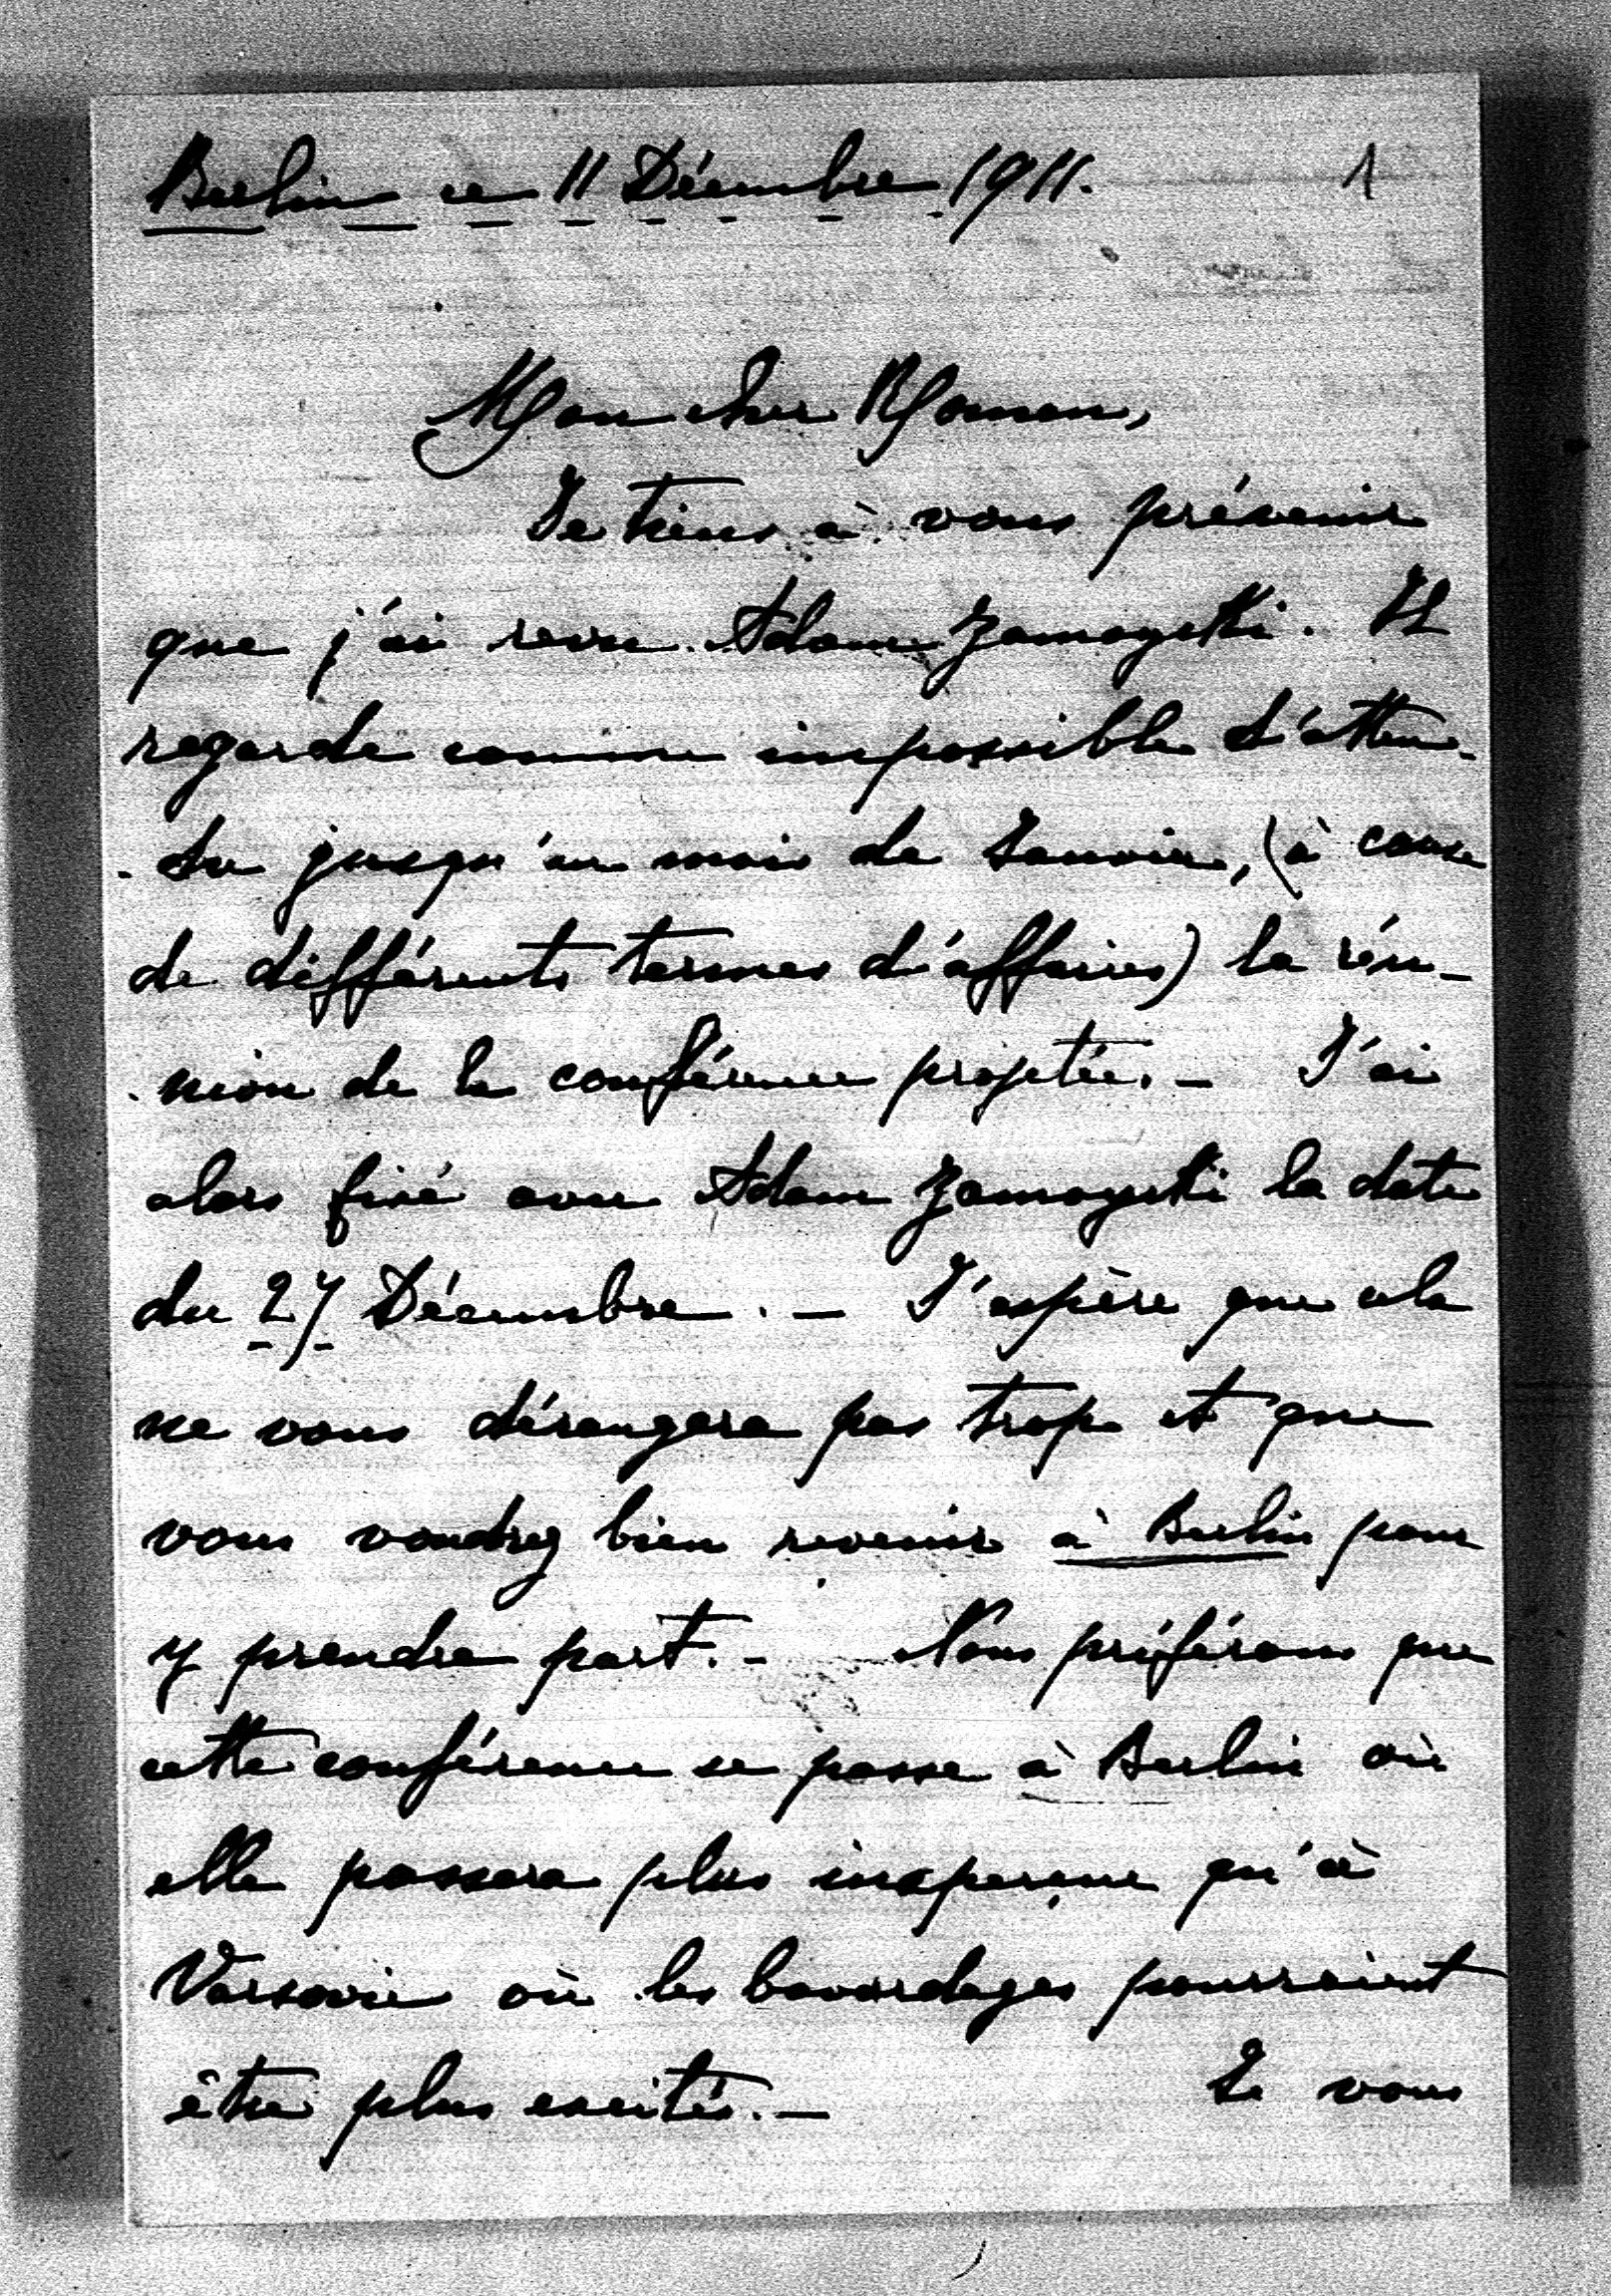 Berlin ce 11 Décembre 1911.
1
Mon cher Roman,
Je tiens à vous prévenir
que j'ai revu Adam Zamoyski. Il
regarde comme impossible d'atten-
-dre jusqu'au mois de Janvier, (à cause
de différents termes d'affaires) la réu-
-nion de la conférence projetée. — J'ai
alors fixé avec Adam Zamoyski la date
du 27 Décembre. — J'espère que cela
ne vous dérangera pas trop et que
vous voudrez bien revenir à Berlin pour
y prendre part. - Nous préférons que
cette conférence se passe à Berlin où
elle passera plus inaperçue qu'à
Varsovie où les bavardages pourraient
être plus excités. —
Je vous